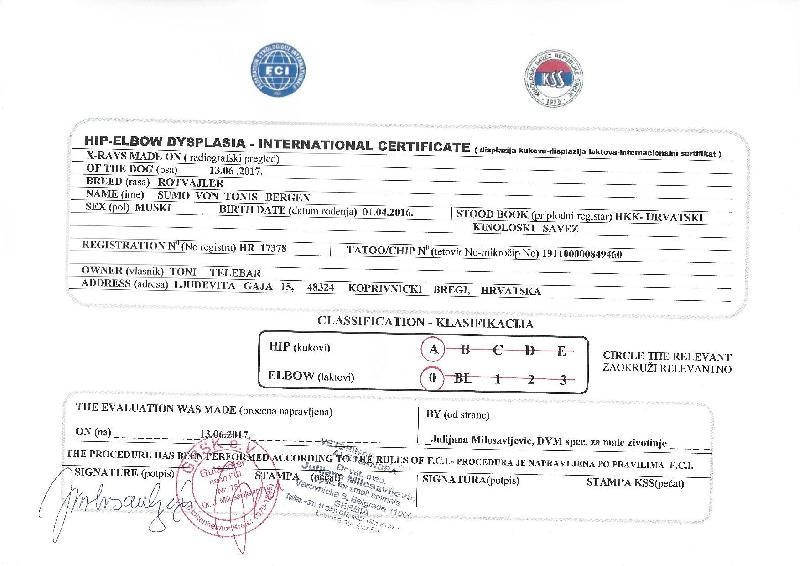 FCI
KSS
HIP-ELBOW DYSPLASIA - INTERNATIONAL CERTIFICATE ( displazija kukova-displazija laktova-internacionalni sertifikat )
X-RAYS MADE ON ( rediografski pregled)
OF THE DOG (psa) 13.06 .2017.
BREED (rasa) ROTVAJLER
NAME (ime) SUMO VON TONIS BERGEN
SEX (pol) MUSKI BIRTH DATE (datum rodenja) 01.04.2016. STOOD BOOK (priplodni registar) HKK- HRVATSKI
KINOLOSKI SAVEZ
REGISTRATION N⁰ (No registra) HR 17378 TATOO/CHIP N⁰ (tetovir No-mikročip No) 191100000849460
OWNER (vlasnik) TONI TELEBAR
ADDRESS (adresa) LJUDEVITA GAJA 15, 48324 KOPRIVNICKI BREGI, HRVATSKA
CLASSIFICATION - KLASIFIKACIJA
HIP (kukovi) A B C D E
ELBOW (laktovi) 0 BL 1 2 3
CIRCLE THE RELEVANT
ZAOKRUŽI RELEVANTNO
THE EVALUATION WAS MADE (procena napravljena)
BY (od strane)
ON (na) 13.06.2017.
Julijana Milosavljevic, DVM spec. za male zivotinje
THE PROCEDURE HAS BEEN PERFORMED ACCORDING TO THE RULES OF F.C.I.- PROCEDURA JE NAPRAVLJENA PO PRAVILIMA F.C.I.
SIGNATURE (potpis) STAMPA (pečat) SIGNATURA(potpis) STAMPA KSS(pečat)